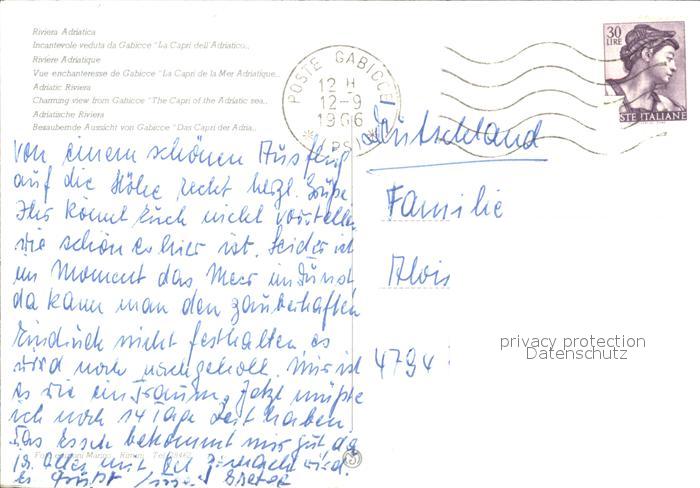 Riviera Adriatica
Incantevole veduta da Gabicce "La Capri dell'Adriatico„
Riviere Adriatique
Vue enchanteresse de Gabicce "La Capri de la Mer Adriatique„
Adriatic Riviera
Charming view from Gabicce "The Capri of the Adriatic sea„
Adriatische Riviera
Bezaubernde Aussicht von Gabicce "Das Capri der Adria„
POSTE GABICCE
12 H
12-9
1966
(PS)
30
LIRE
POSTE ITALIANE
Von einem schönen Ausflug
auf die Höhe recht herzl. Grüße
Ihr könnt Euch nicht vorstellen
wie schön es hier ist. Leider ist
im Moment das Meer im Dunst
da kann man den zauberhaften
Eindruck nicht festhalten es
wird noch nachgeholt. Mir ist
es wie ein Traum. Jetzt müßte
ich noch 14 Tage Zeit haben.
Das Essen bekommt mir gut da
ja alles mit Öl gemacht wird.
Es grüßt
Deutschland
Familie
Alois
4794
privacy protection
Datenschutz